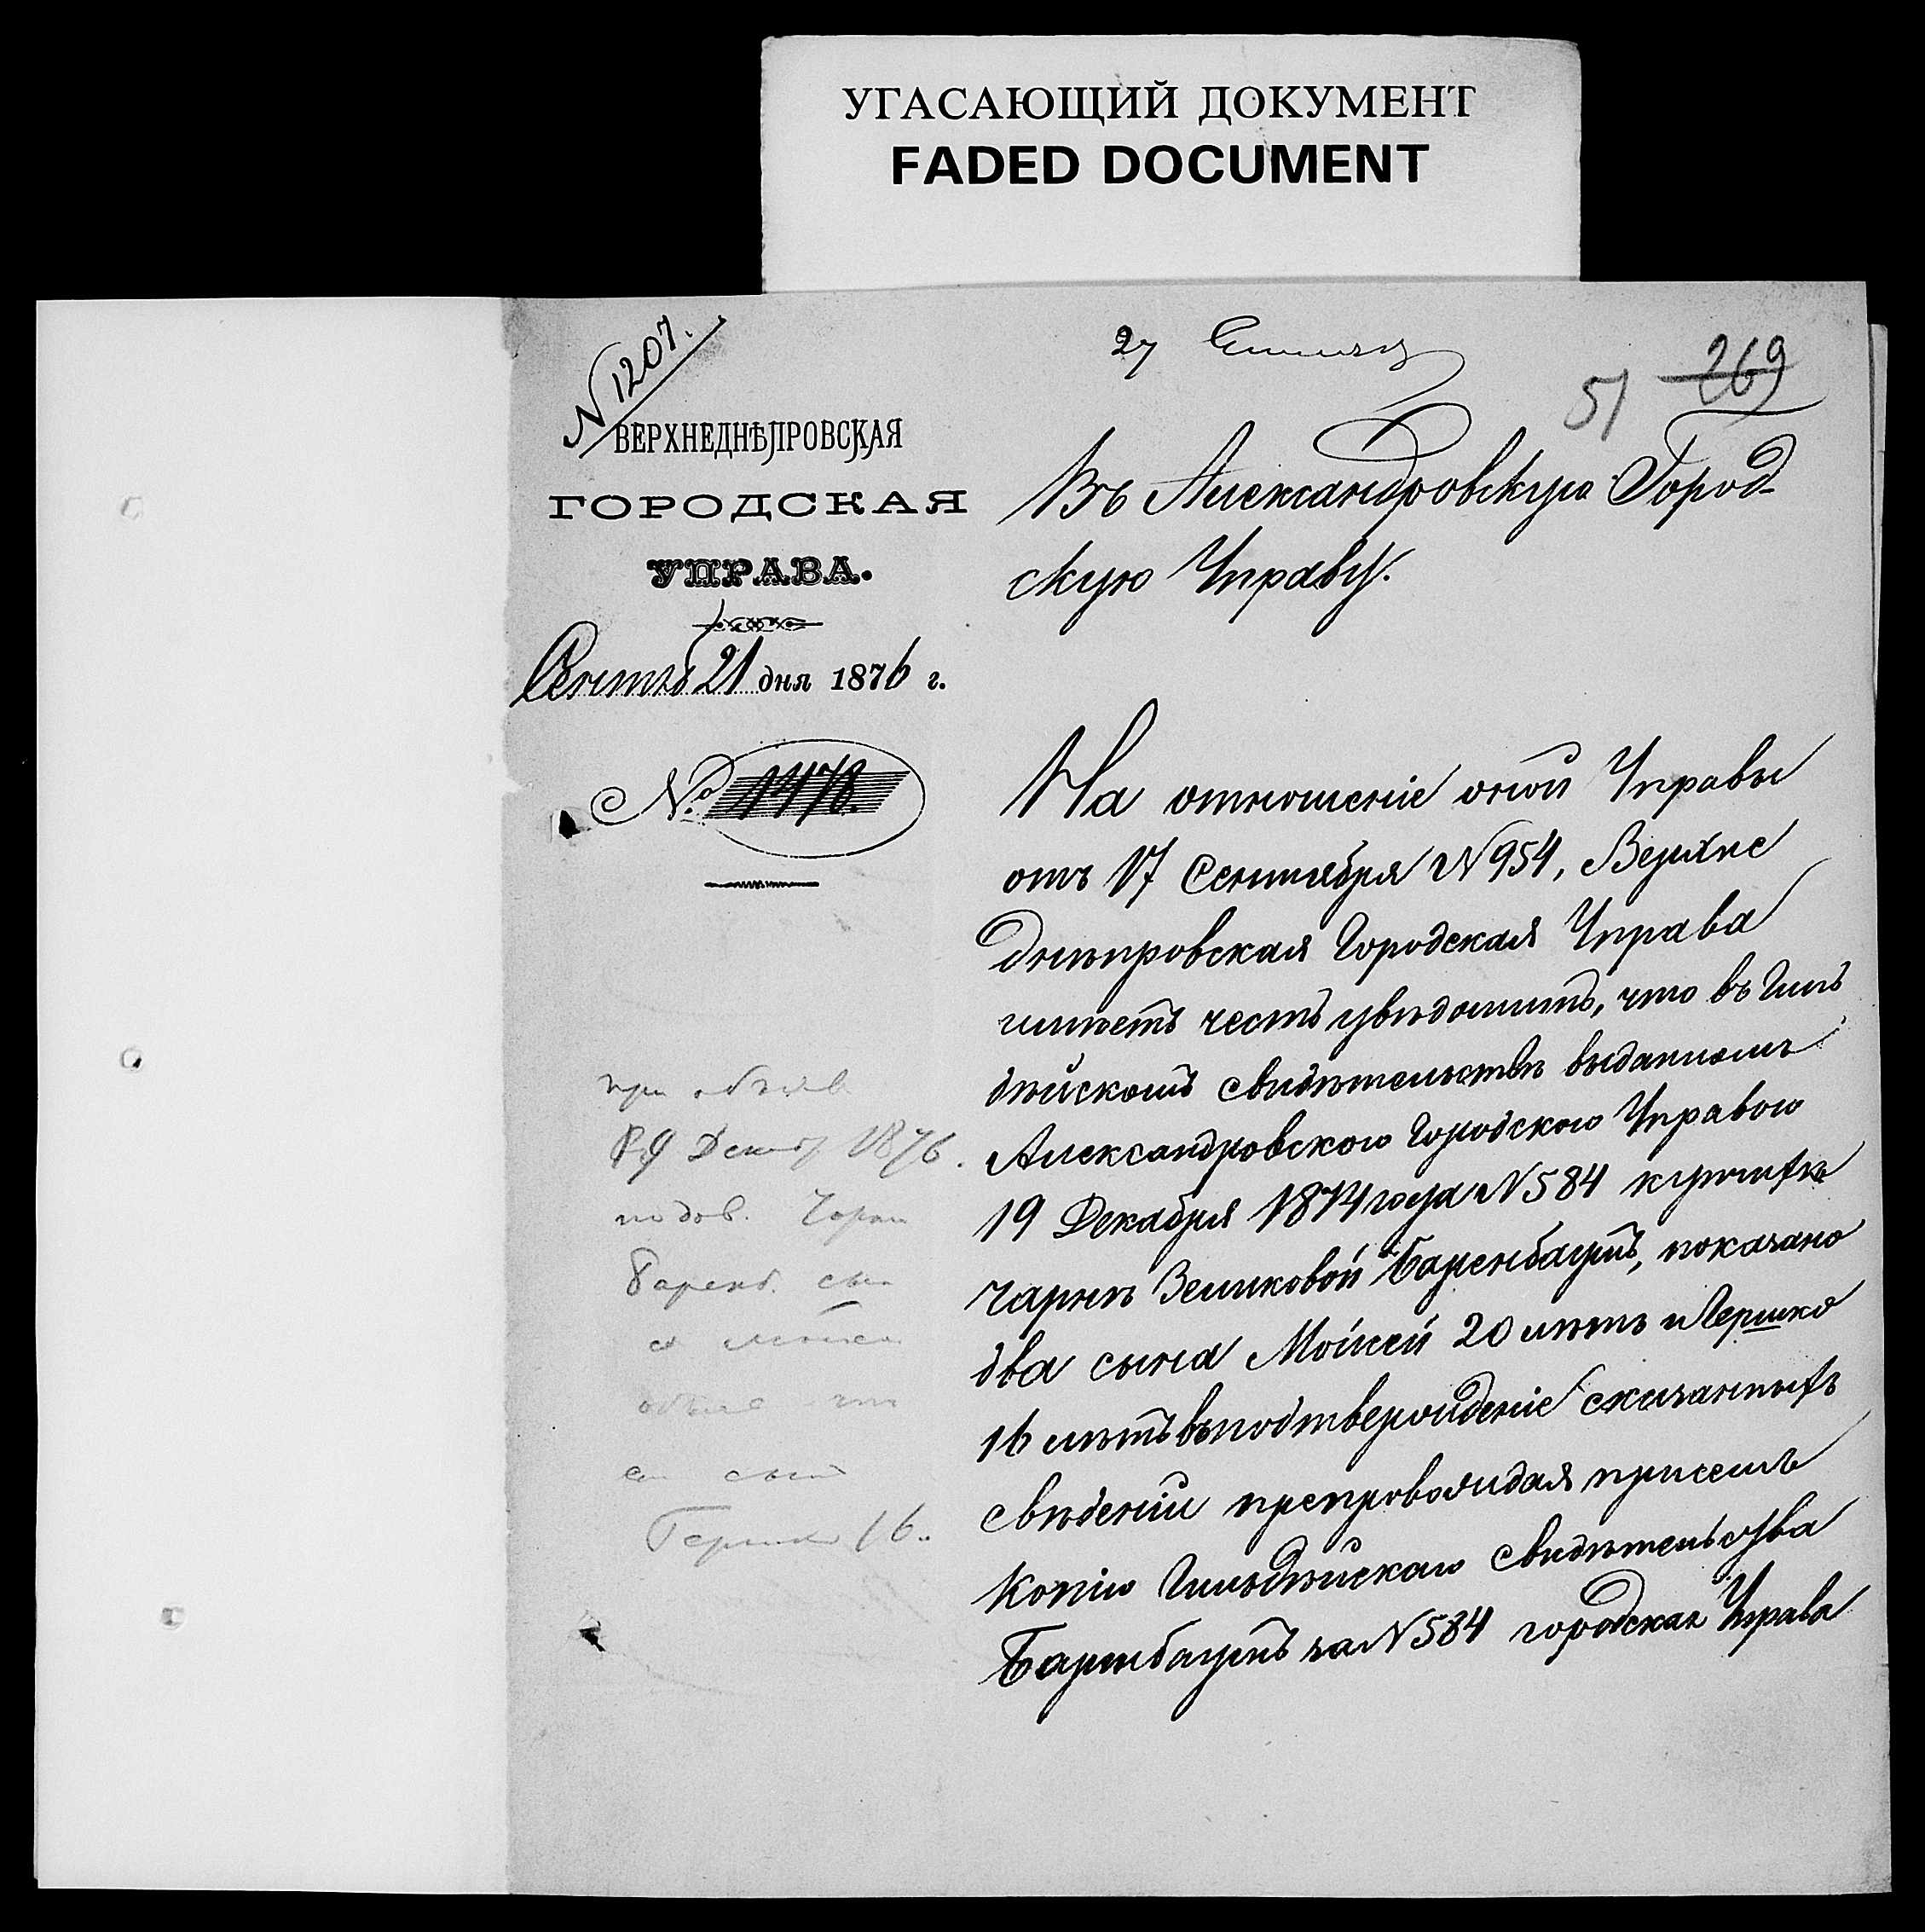 УГАСАЮЩИЙ ДОКУМЕНТ
FADED DOCUMENT
N 1207.
27
51 269
ВЕРХНЕДНѢПРОВСКАЯ
ГОРОДСКАЯ
УПРАВА.
Сентяб 21 дня 1876 г.
№ 1478.
Въ Александровскую Город-
скую Управу.
На отношеніе оной Управы
отъ 17 Сентября N 954, Верхне
днѣпровская Городская Управа
имѣетъ честь увѣдомить, что въ Гиль
дѣйскомъ свидѣтельствѣ выданномъ
Александровскою Городскою Управою
19 Декабря 1874 года N 584 купчихѣ
Чарнѣ Зеликовой Баренбаумъ, показано
два сына Мойсей 20 лѣтъ и Гершко
16 лѣтъ въ подтвержденіе сказанныхъ
свѣденій препровождая присемъ
Копію Гильдѣйскаго свидѣтельства
Баренбаумъ за N 584 городская Управа
при объяв
9 Декаб 1876.
по дов.
Баренб. сын
сын
Гершко 16.